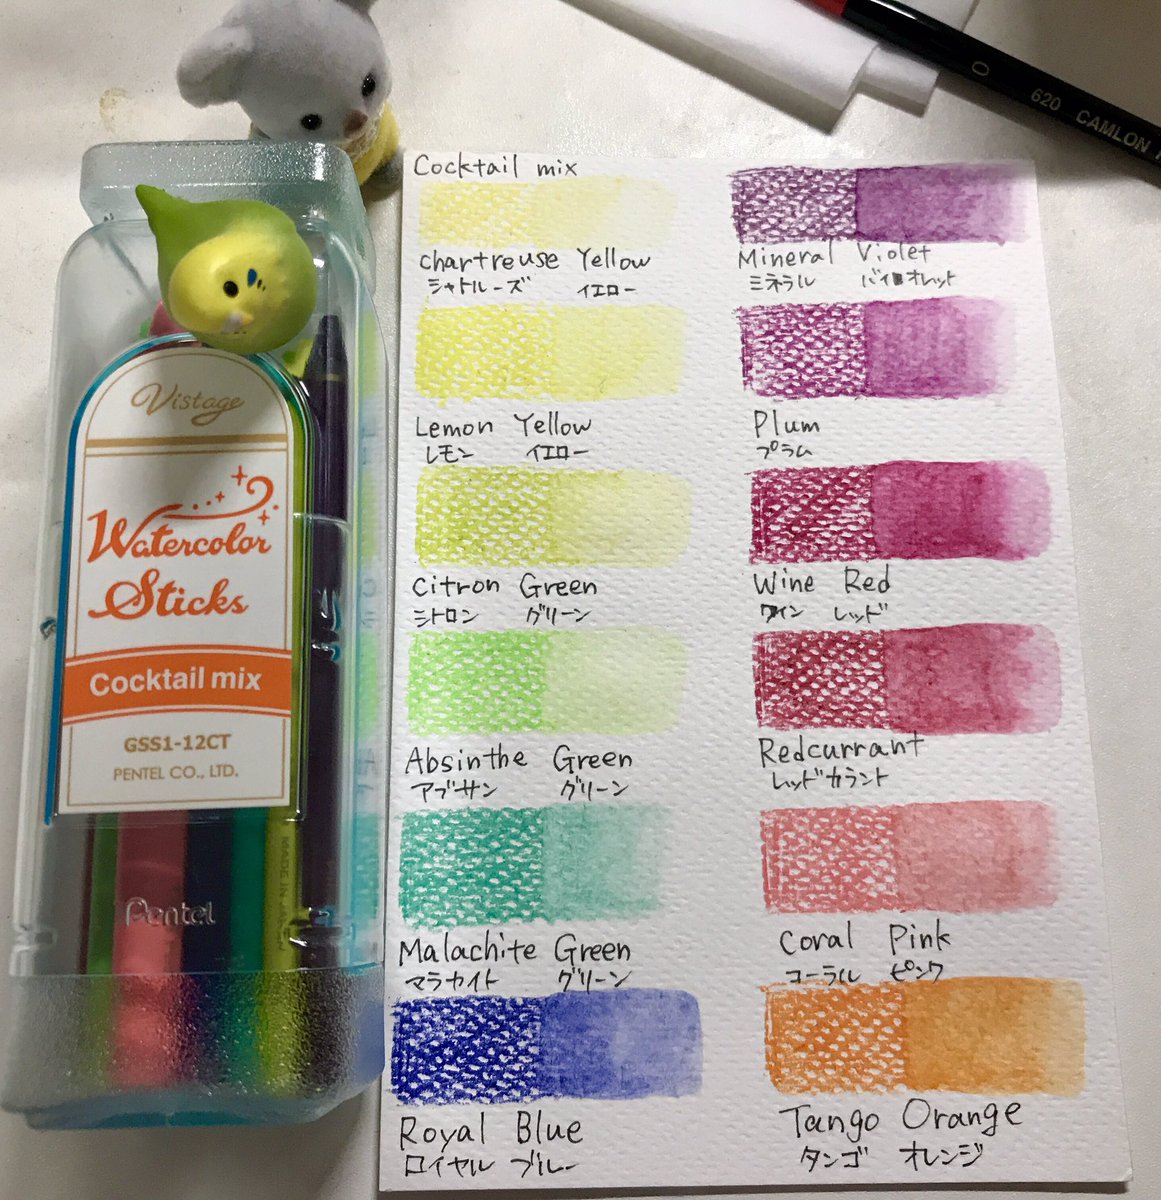 620 CAMLON
Vistage
Watercolor
Sticks
Cocktail mix
GSS1-12CT
PENTEL CO., LTD.
Pentel
Cocktail mix
Chartreuse Yellow
シャトルーズ イエロー
Lemon Yellow
レモン イエロー
Citron Green
シトロン グリーン
Absinthe Green
アブサン グリーン
Malachite Green
マラカイト グリーン
Royal Blue
ロイヤル ブルー
Mineral Violet
ミネラル バイオレット
Plum
プラム
Wine Red
ワイン レッド
Redcurrant
レッドカラント
Coral Pink
コーラル ピンク
Tango Orange
タンゴ オレンジ